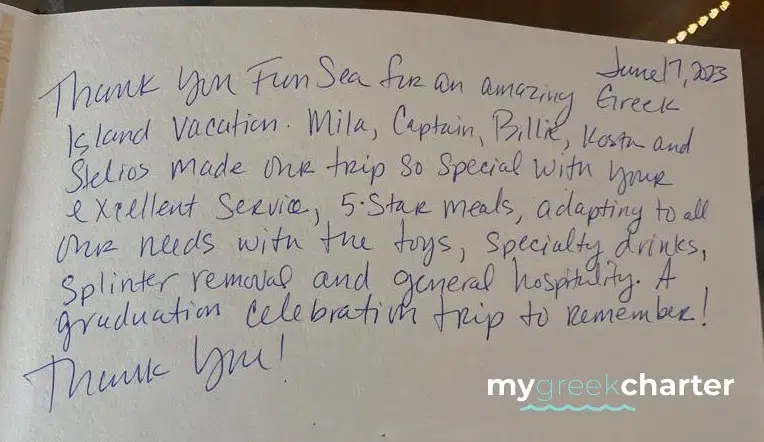 June 17, 2023
Thank you Fun Sea for an amazing Greek
Island vacation. Mila, Captain, Billie, Kosta and
Stelios made our trip so special with your
excellent service, 5-Star meals, adapting to all
our needs with the toys, specialty drinks,
splinter removal and general hospitality. A
graduation celebration trip to remember!
Thank you!
mygreekcharter